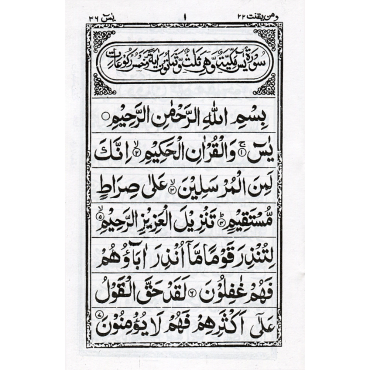 ومن يقنت ٢٢ ١ يٰسٓ ٣٦
سورة يٰسٓ مكية وهي ثلث وثمانون اية وخمس ركوعات
بِسْمِ اللهِ الرَّحْمٰنِ الرَّحِيْمِ
يٰسٓ ۚ﴿١﴾ وَالْقُرْاٰنِ الْحَكِيْمِ ۙ﴿٢﴾ اِنَّكَ
لَمِنَ الْمُرْسَلِيْنَ ۙ﴿٣﴾ عَلٰى صِرَاطٍ
مُّسْتَقِيْمٍ ؕ﴿٤﴾ تَنْزِيْلَ الْعَزِيْزِ الرَّحِيْمِ ۙ﴿٥﴾
لِتُنْذِرَ قَوْمًا مَّاۤ اُنْذِرَ اٰبَآؤُهُمْ
فَهُمْ غٰفِلُوْنَ ﴿٦﴾ لَقَدْ حَقَّ الْقَوْلُ
عَلٰۤى اَكْثَرِهِمْ فَهُمْ لَا يُؤْمِنُوْنَ ﴿٧﴾